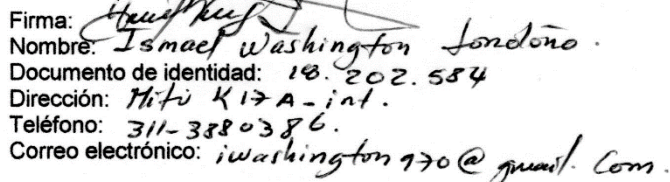 Firma:
Nombre: Ismael Washington Londoño.
Documento de identidad: 18.202.584
Dirección: Mitú K 17 A - int.
Teléfono: 311-3880386.
Correo electrónico: iwashington970@gmail.com.